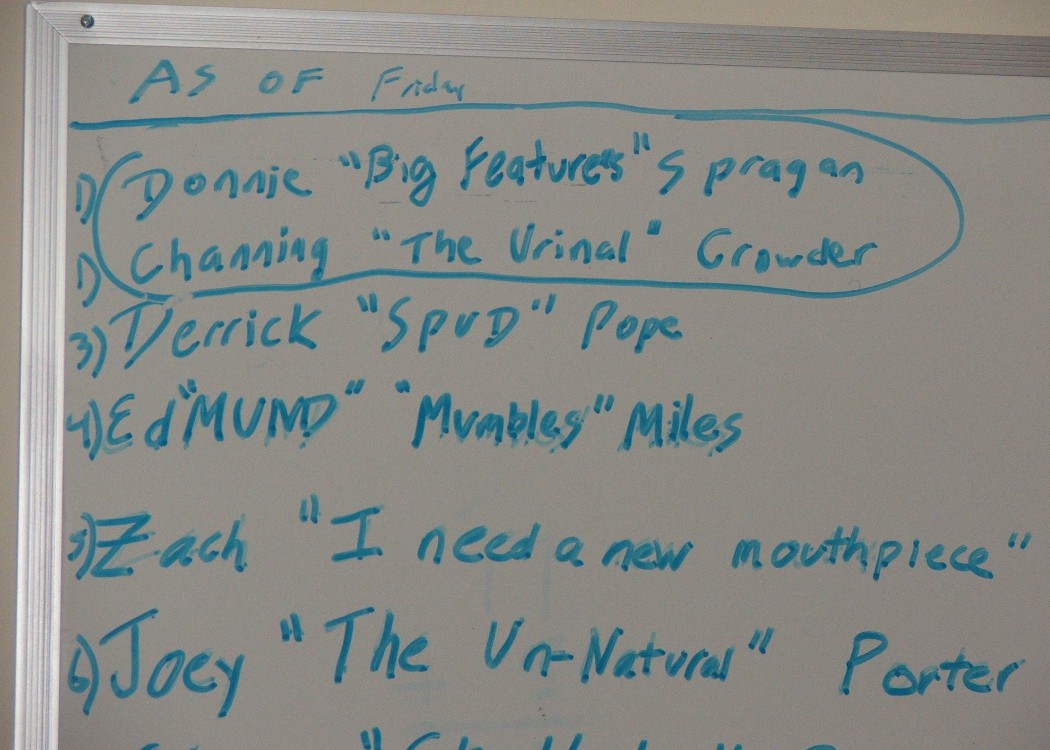 As OF Friday
1) Donnie "Big Features" Spragan
1) Channing "The Urinal" Crowder
3) Derrick "SpuD" Pope
4) Ed "MUND" "Mumbles" Miles
5) Zach "I need a new mouthpiece"
6) Joey "The Un-Natural" Porter